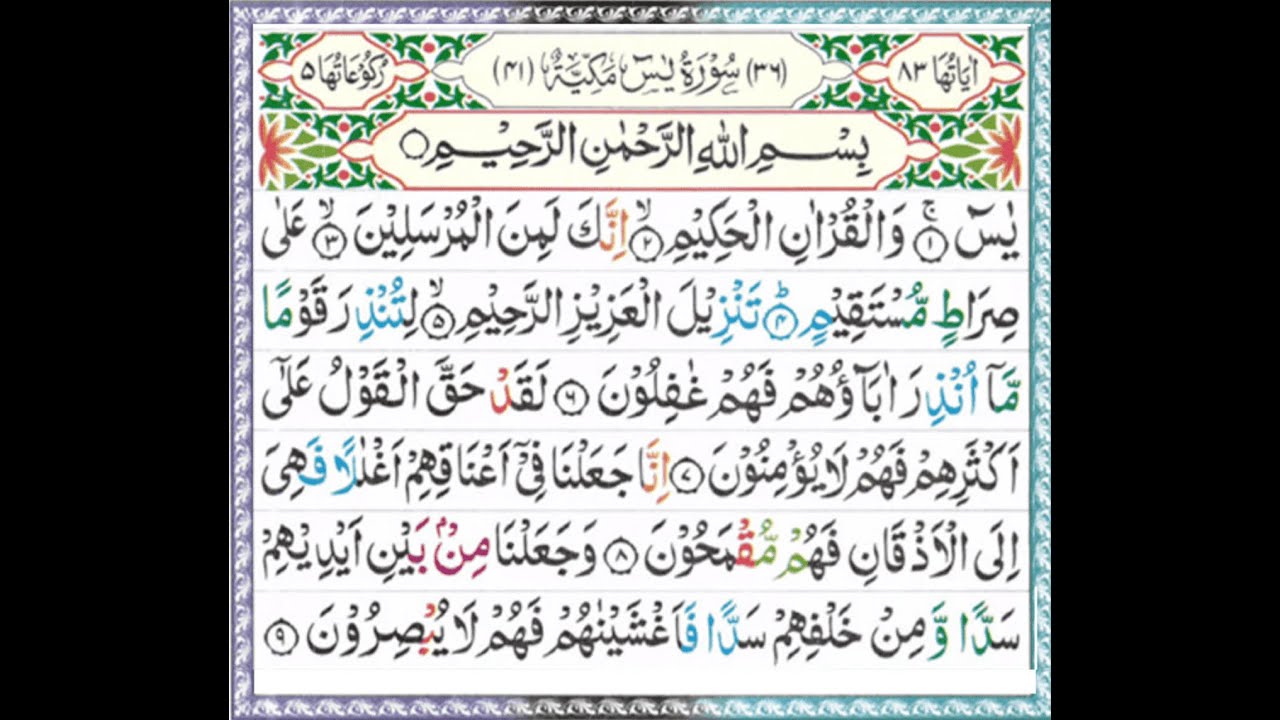 اٰيَاتُهَا ٨٣ (٣٦) سُوْرَةُ يٰسٓ مَكِّيَّةٌ (٤١) رُكُوْعَاتُهَا ٥
بِسْمِ اللهِ الرَّحْمٰنِ الرَّحِيْمِ
يٰسٓ ۚ ﴿١﴾ وَالْقُرْاٰنِ الْحَكِيْمِ ۙ ﴿٢﴾ اِنَّكَ لَمِنَ الْمُرْسَلِيْنَ ۙ ﴿٣﴾ عَلٰى
صِرَاطٍ مُّسْتَقِيْمٍ ؕ ﴿٤﴾ تَنْزِيْلَ الْعَزِيْزِ الرَّحِيْمِ ۙ ﴿٥﴾ لِتُنْذِرَ قَوْمًا
مَّاۤ اُنْذِرَ اٰبَآؤُهُمْ فَهُمْ غٰفِلُوْنَ ﴿٦﴾ لَقَدْ حَقَّ الْقَوْلُ عَلٰۤى
اَكْثَرِهِمْ فَهُمْ لَا يُؤْمِنُوْنَ ﴿٧﴾ اِنَّا جَعَلْنَا فِيْۤ اَعْنَاقِهِمْ اَغْلٰلًا فَهِىَ
اِلَى الْاَذْقَانِ فَهُمْ مُّقْمَحُوْنَ ﴿٨﴾ وَجَعَلْنَا مِنْۢ بَيْنِ اَيْدِيْهِمْ
سَدًّا وَّمِنْ خَلْفِهِمْ سَدًّا فَاَغْشَيْنٰهُمْ فَهُمْ لَا يُبْصِرُوْنَ ﴿٩﴾